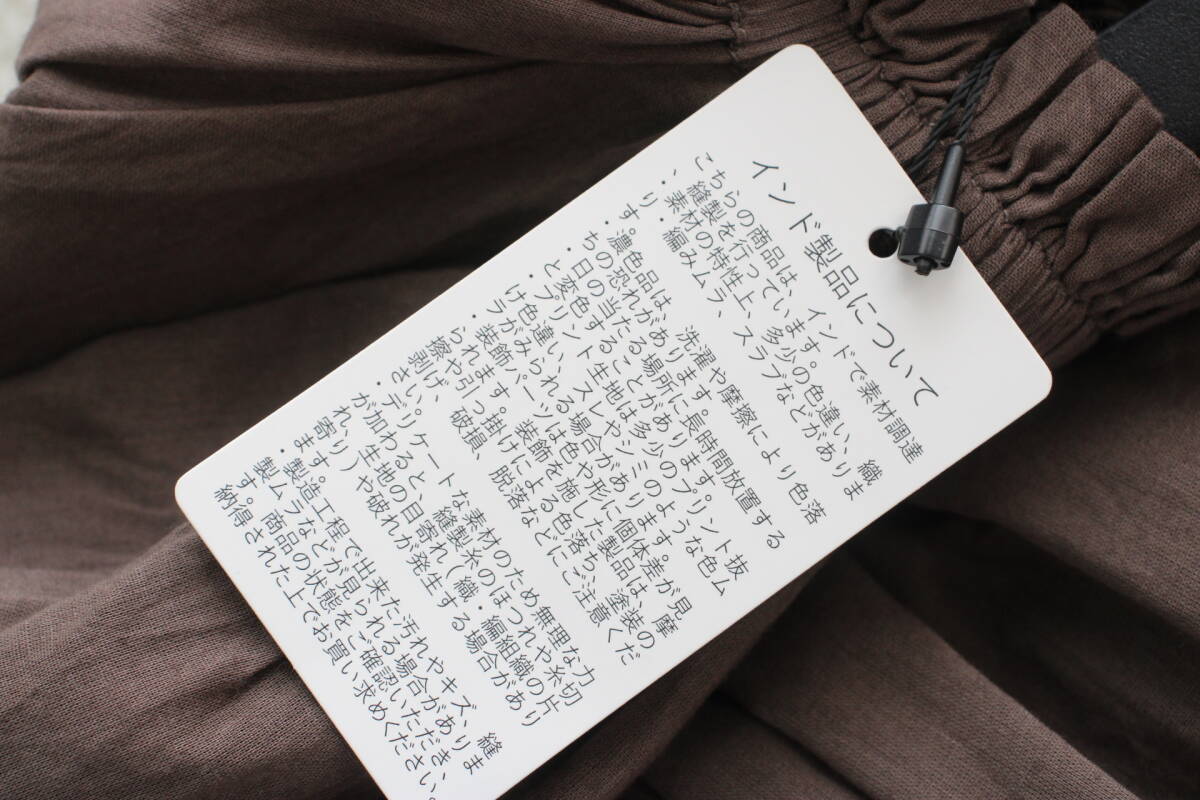 インド製品について
こちらの商品は、インドで素材調達
、縫製を行っています。
・素材の特性上、多少の色違い、織
り・編みムラ、スラブなどがありま
す。
・濃色品は、洗濯や摩擦により色落
ちの恐れがあります。
・日の当たる場所に長時間放置する
と変色することがあります。
・プリント生地は多少のプリント抜
け色違い、スレやシミのような色ム
ラがみられる場合があります。
・装飾パーツは色や形に個体差が見
られます。装飾を施した製品は、摩
擦や引っ掛けによる色落ち、塗装の
剥げ、破損、脱落などにご注意くだ
さい。
・デリケートな素材のため無理な力
が加わると、縫製糸のほつれや糸切
れ、生地の目寄れ(織・編組織の片
寄り)や破れが発生する場合があり
ます。
・製造工程で出来た汚れやキズ、縫
製ムラなどが見られる場合がありま
す。商品の状態をご確認いただき、
納得された上でお買い求めください。